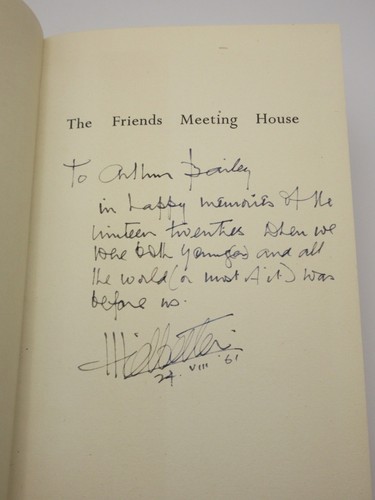 The Friends Meeting House
To Arthur Bailey
in happy memories of the
nineteen twenties when we
were both younger and all
the world (or most of it) was
before us.
24. VIII '61